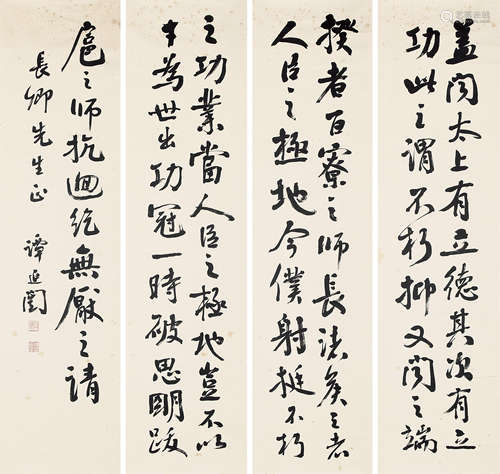 盖聞太上有立德其次有立
功此之謂不朽抑又聞之端
揆者百寮之師長諸矦王者
人臣之極地今僕射挺不朽
之功業當人臣之極地豈不以
才為世出功冠一時破思明跋
扈之師抗迴紇無厭之請
長卿先生正 譚延闓